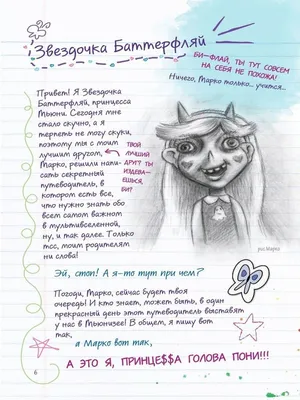 Звездочка Баттерфляй
БИ-ФЛАЙ, ТЫ ТУТ СОВСЕМ
НА СЕБЯ НЕ ПОХОЖА!
Ничего, Марко только... учится...
Привет! Я Звездочка
Баттерфляй, принцесса
Мьюни. Сегодня мне
стало скучно, а я
терпеть не могу скуки,
поэтому мы с моим
лучшим другом,
Марко, решили напи-
сать секретный
путеводитель, в
котором есть все,
что нужно знать обо
всем самом важном
в мультивселенной,
ну, и так далее. Только
тсс, моим родителям
ни слова!
ТВОЙ
ЛУЧШИЙ
ДРУГ? ТЫ
ИЗДЕВА-
ЕШЬСЯ,
БИ?
рис.Марко
Эй, стоп! А я-то тут при чем?
Погоди, Марко, сейчас будет твоя
очередь! И кто знает, может быть, в один
прекрасный день этот путеводитель выставят
у нас в Мьюнизее! В общем, я пишу вот
так,
а Марко вот так,
А ЭТО Я, ПРИНЦЕ$$А ГОЛОВА ПОНИ!!!
6